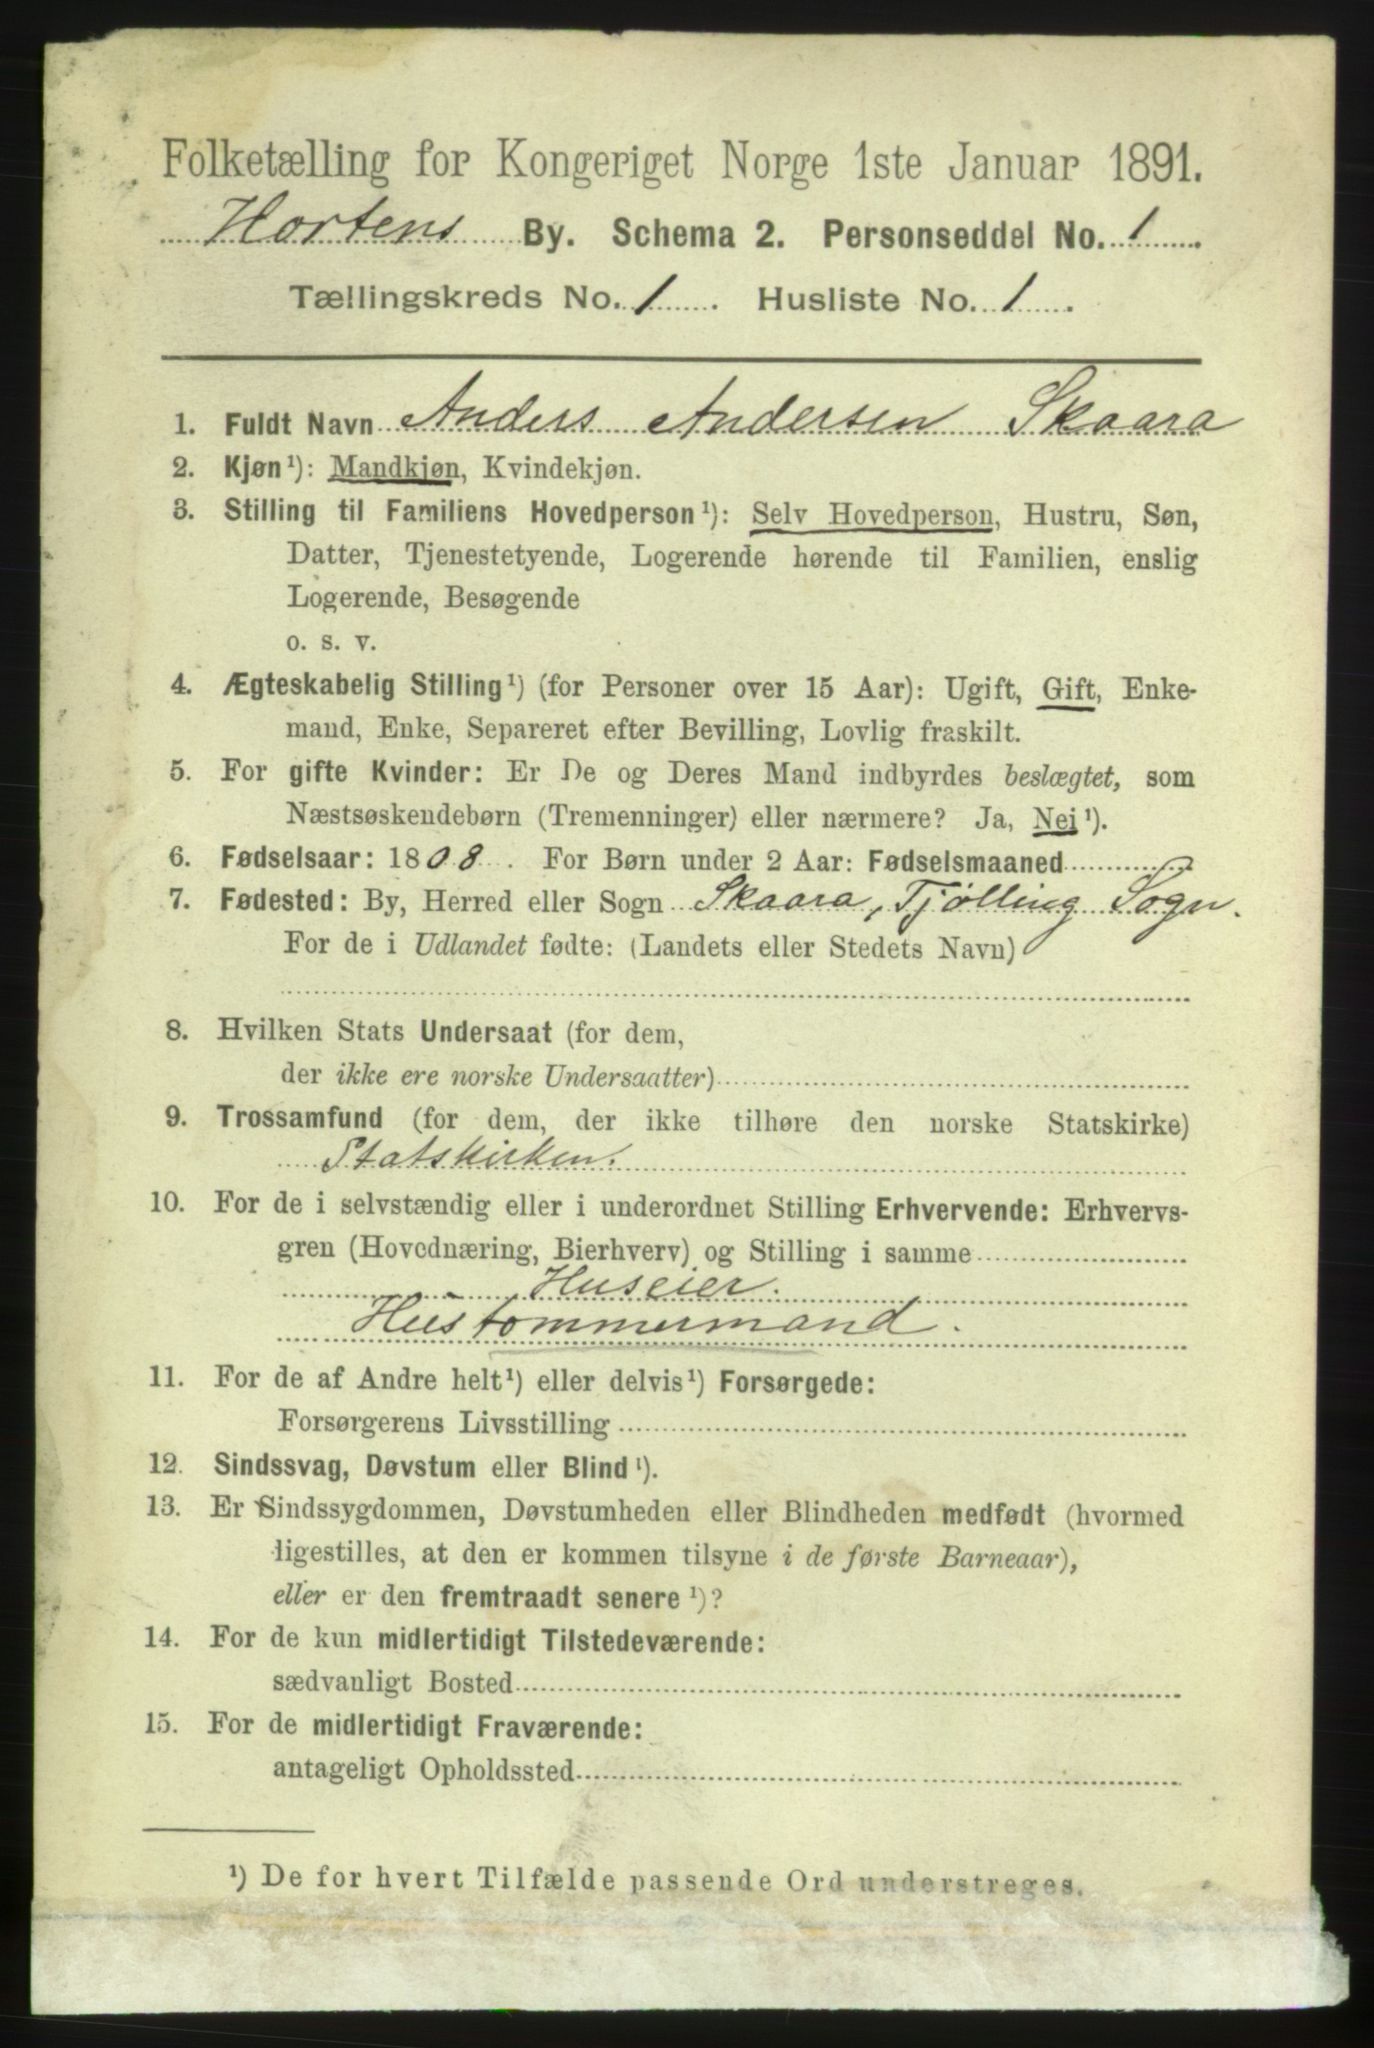 Folketælling for Kongeriget Norge 1ste Januar 1891.
Hortens By. Schema 2. Personseddel No. 1.
Tællingskreds No. 1. Husliste No. 1.
1. Fuldt Navn Anders Andersen Skaara
2. Kjøn¹): Mandkjøn, Kvindekjøn.
3. Stilling til Familiens Hovedperson¹): Selv Hovedperson, Hustru, Søn,
Datter, Tjenestetyende, Logerende hørende til Familien, enslig
Logerende, Besøgende
o. s. v.
4. Ægteskabelig Stilling¹) (for Personer over 15 Aar): Ugift, Gift, Enke-
mand, Enke, Separeret efter Bevilling, Lovlig fraskilt.
5. For gifte Kvinder: Er De og Deres Mand indbyrdes beslægtet, som
Næstsøskendebørn (Tremenninger) eller nærmere? Ja, Nei¹).
6. Fødselsaar: 1808. For Børn under 2 Aar: Fødselsmaaned
7. Fødested: By, Herred eller Sogn Skaara, Tjølling Sogn.
For de i Udlandet fødte: (Landets eller Stedets Navn)
8. Hvilken Stats Undersaat (for dem,
der ikke ere norske Undersaatter)
9. Trossamfund (for dem, der ikke tilhøre den norske Statskirke)
Statskirken.
10. For de i selvstændig eller i underordnet Stilling Erhvervende: Erhvervs-
gren (Hovednæring, Bierhverv) og Stilling i samme
Huseier.
Hustommermand.
11. For de af Andre helt¹) eller delvis¹) Forsørgede:
Forsørgerens Livsstilling
12. Sindssvag, Døvstum eller Blind¹).
13. Er Sindssygdommen, Døvstumheden eller Blindheden medfødt (hvormed
ligestilles, at den er kommen tilsyne i de første Barneaar),
eller er den fremtraadt senere¹)?
14. For de kun midlertidigt Tilstedeværende:
sædvanligt Bosted
15. For de midlertidigt Fraværende:
antageligt Opholdssted
¹) De for hvert Tilfælde passende Ord understreges.